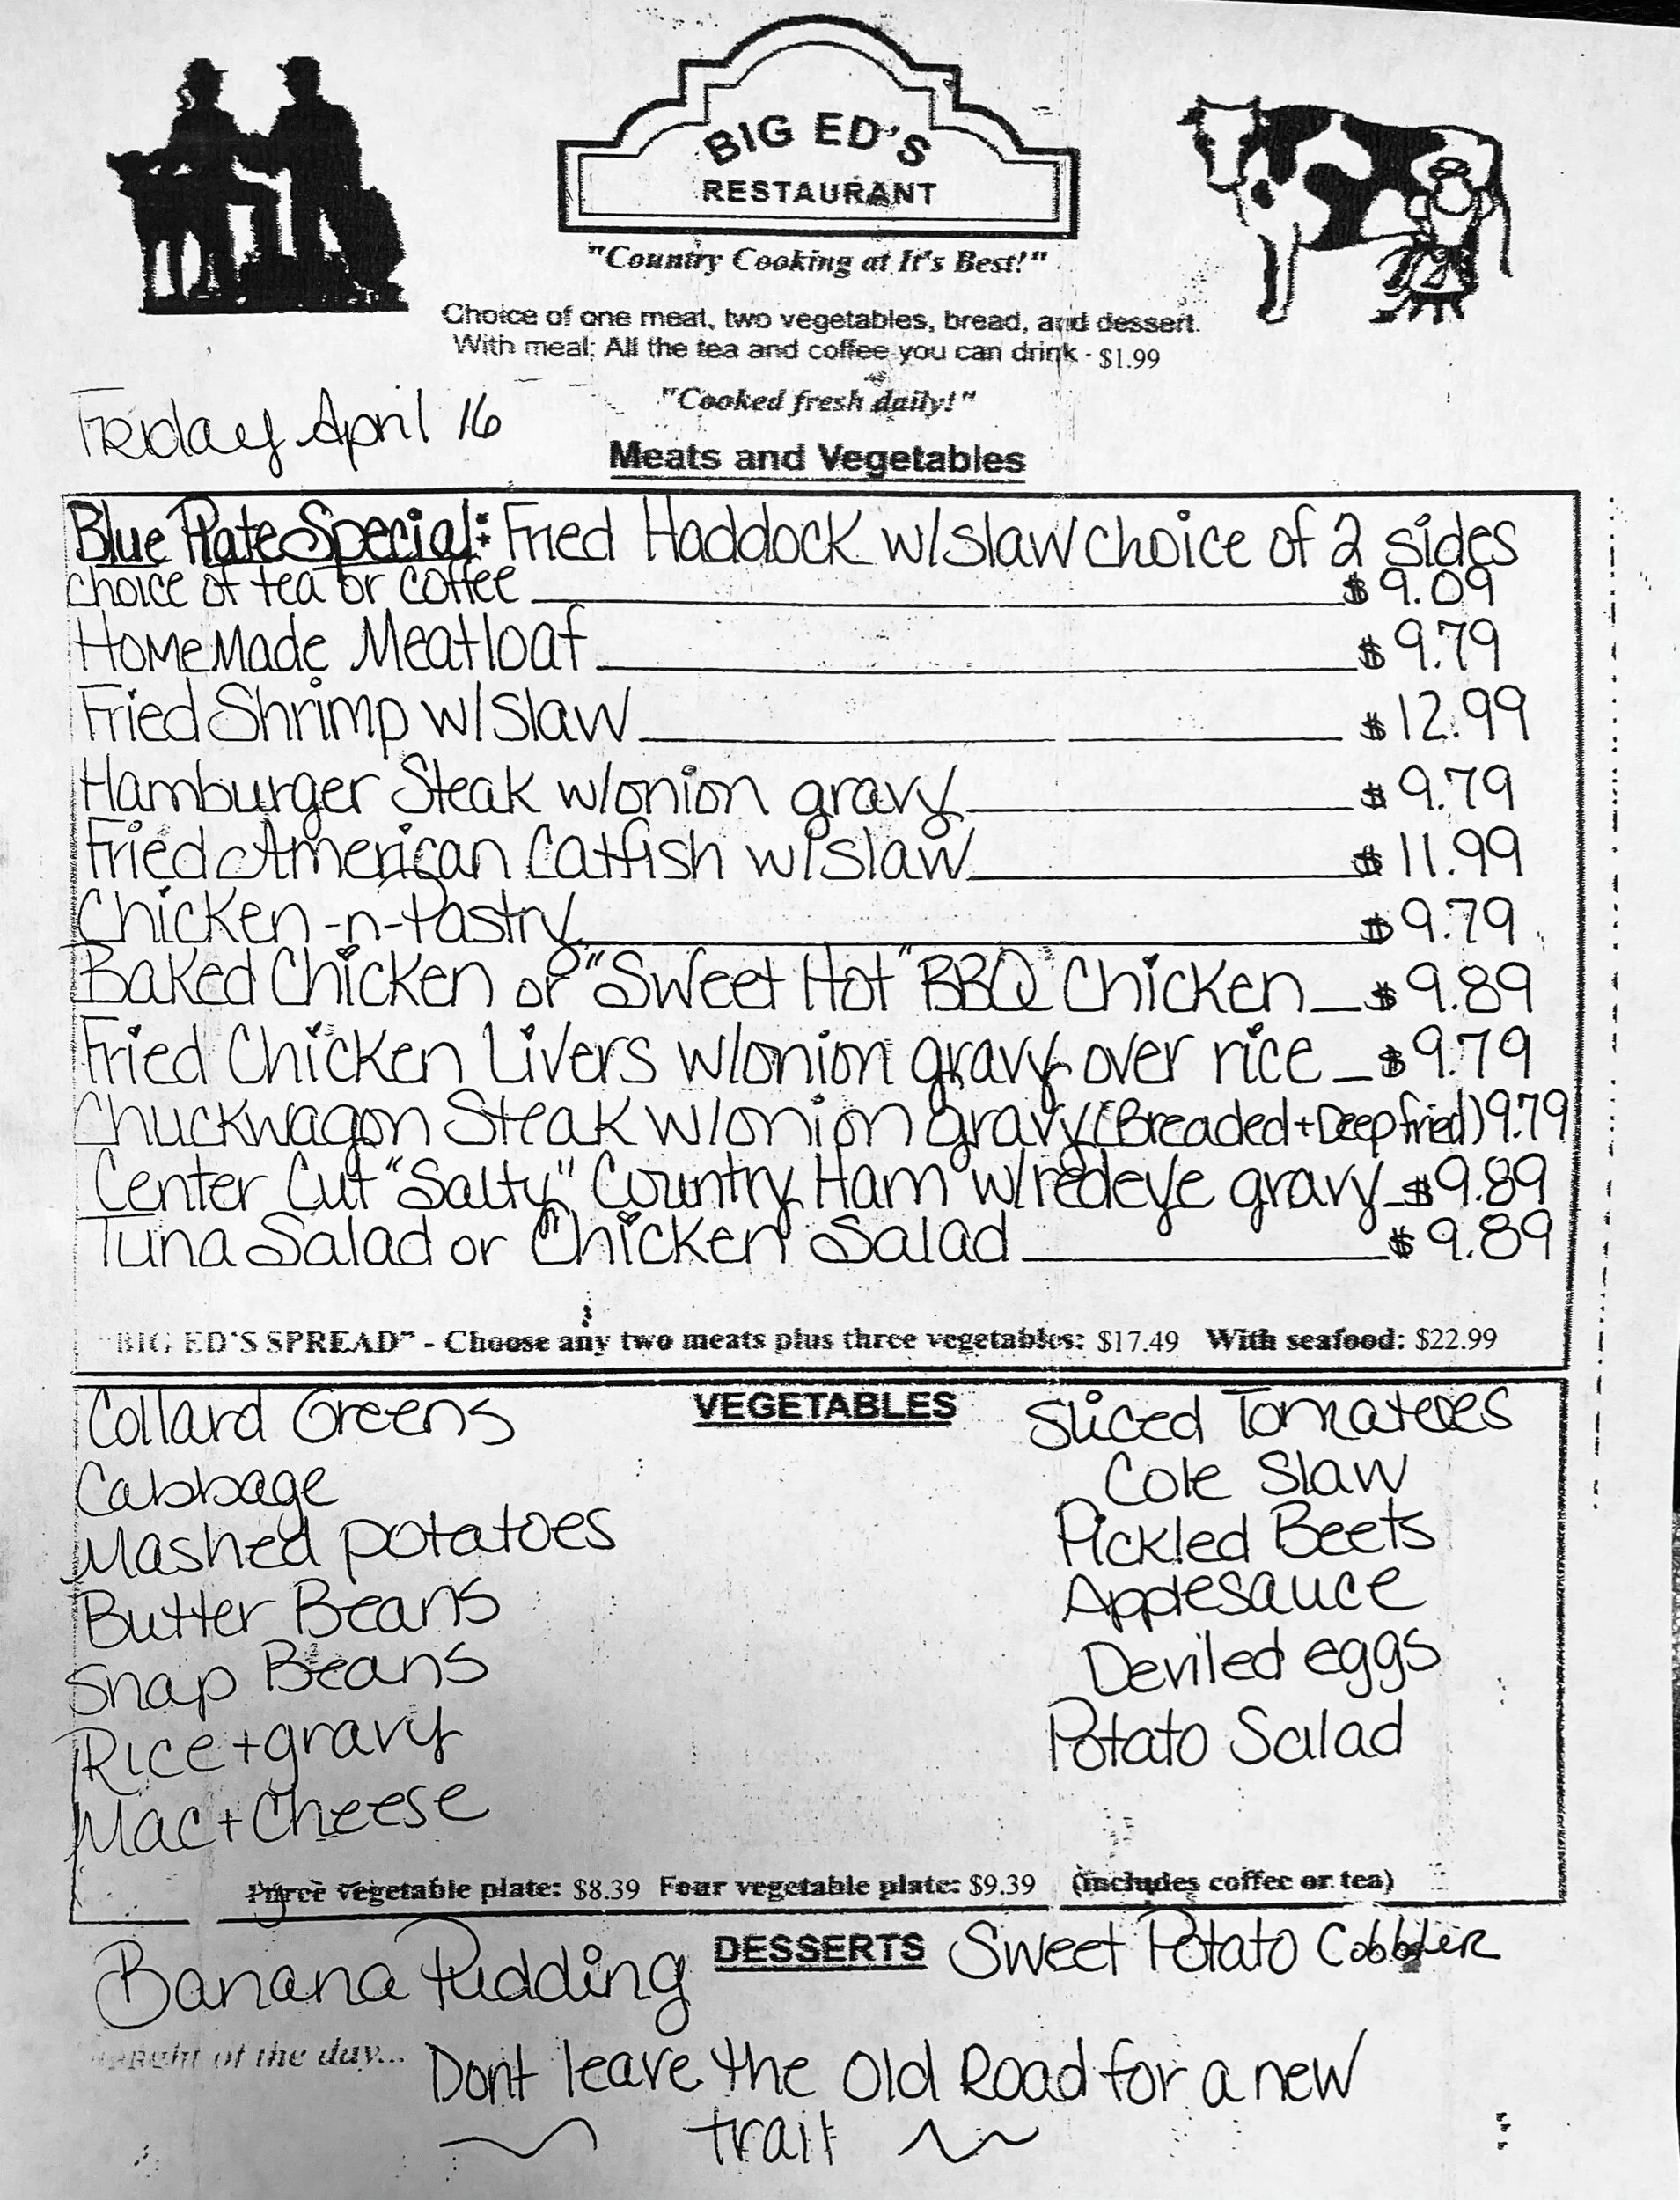 BIG ED'S
RESTAURANT
"Country Cooking at It's Best!"
Choice of one meat, two vegetables, bread, and dessert.
With meal: All the tea and coffee you can drink - $1.99
"Cooked fresh daily!"
Friday April 16
Meats and Vegetables
Blue Plate Special: Fried Haddock w/slaw choice of 2 sides
choice of tea or coffee $9.09
HomeMade Meatloaf $9.79
Fried Shrimp w/Slaw $12.99
Hamburger Steak w/onion gravy $9.79
Fried American Catfish w/slaw $11.99
Chicken-n-Pastry $9.79
Baked Chicken or "Sweet Hot" BBQ Chicken $9.89
Fried Chicken Livers w/onion gravy over rice $9.79
Chuckwagon Steak w/onion gravy (Breaded+Deep fried) 9.79
Center Cut "Salty" Country Ham w/redeye gravy $9.89
Tuna Salad or Chicken Salad $9.89
"BIG ED'S SPREAD" - Choose any two meats plus three vegetables: $17.49 With seafood: $22.99
VEGETABLES
Collard Greens
Cabbage
Mashed potatoes
Butter Beans
Snap Beans
Rice + gravy
Mac + Cheese
Sliced Tomatoes
Cole Slaw
Pickled Beets
Applesauce
Deviled eggs
Potato Salad
Three vegetable plate: $8.39 Four vegetable plate: $9.39 (includes coffee or tea)
DESSERTS
Banana Pudding
Sweet Potato Cobbler
of the day... Dont leave the Old Road for a new
trail